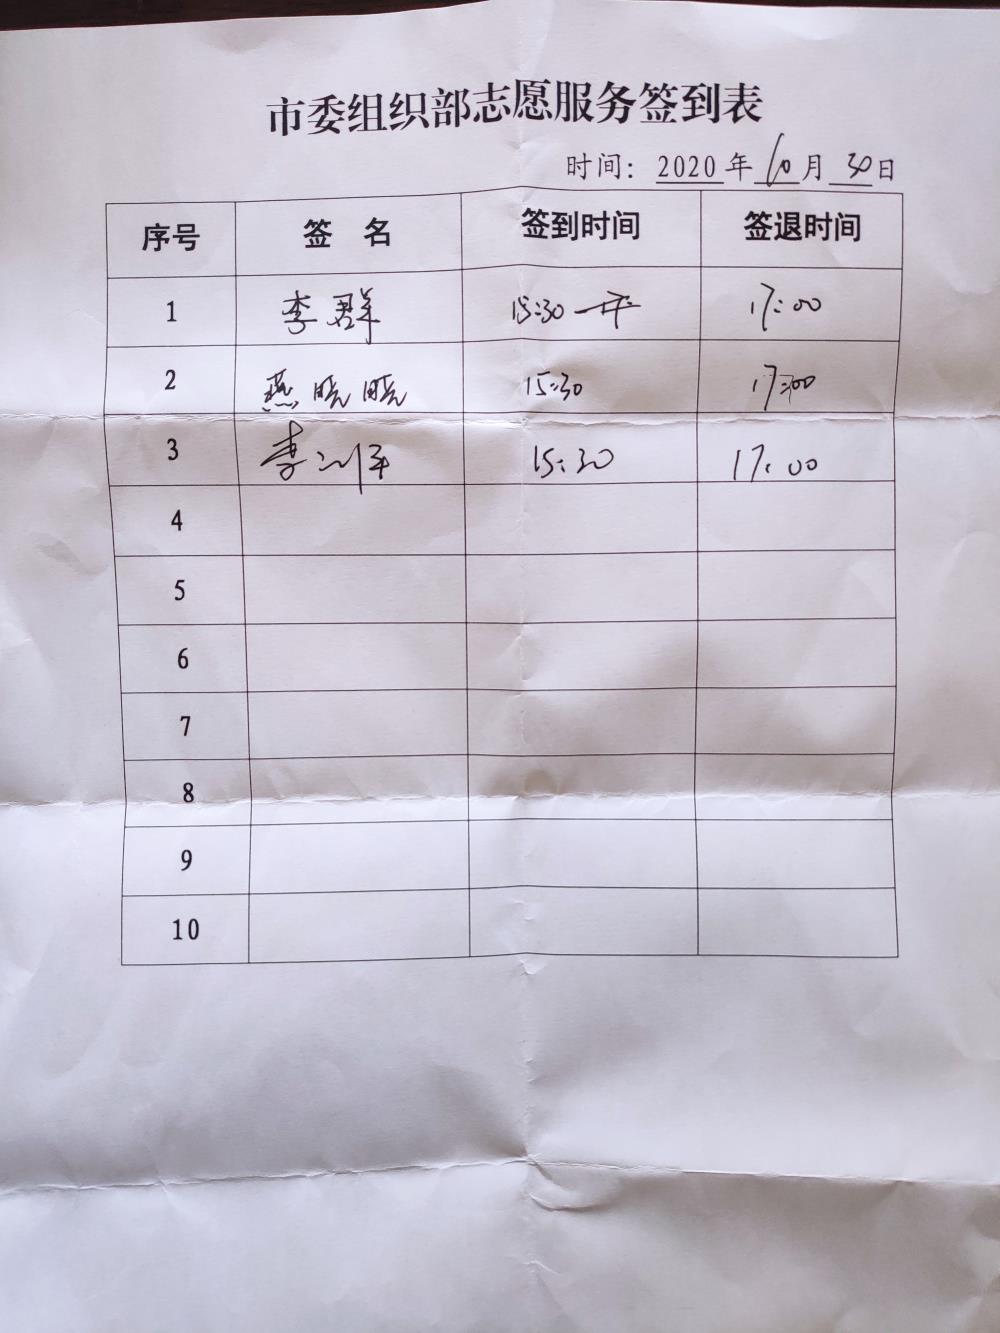 市委组织部志愿服务签到表
时间：2020年10月30日
序号 签名 签到时间 签退时间
1 李群 15:30 17:00
2 燕晓晓 15:30 17:00
3 李 15:30 17:00
4
5
6
7
8
9
10